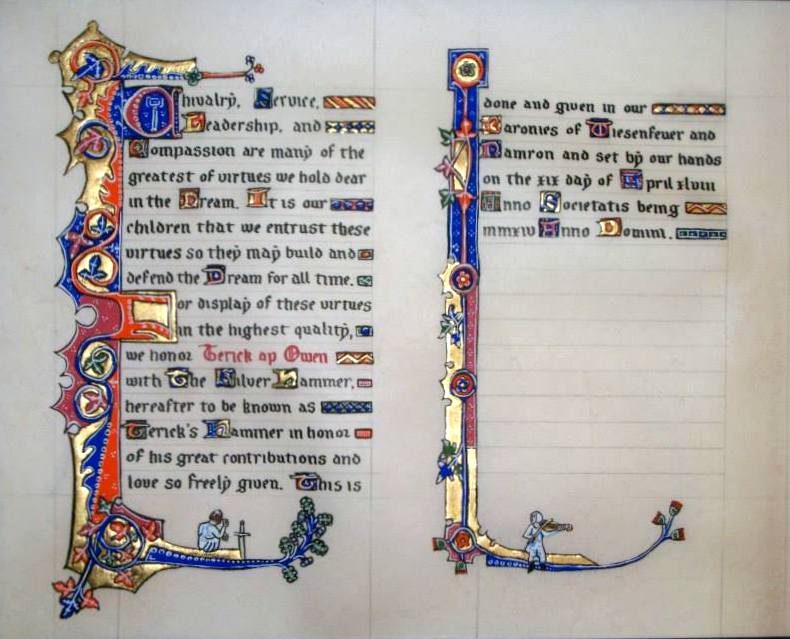 Chivalry, Service,
Leadership, and
Compassion are many of the
greatest of virtues we hold dear
in the Dream. It is our
children that we entrust these
virtues so they may build and
defend the Dream for all time.
For display of these virtues
in the highest quality,
we honor Terick ap Owen
with The Silver Hammer,
hereafter to be known as
Terick's Hammer in honor
of his great contributions and
love so freely given. This is
done and given in our
Baronies of Tiesenfeuer and
Namron and set by our hands
on the xix day of April xlviii
Anno Societatis being
mmxiv Anno Domini.